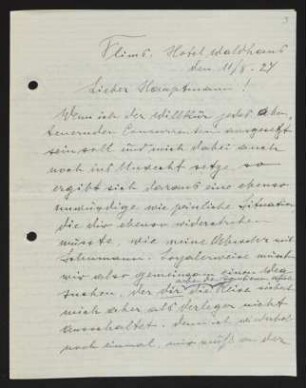 3
Flims. Hotel Waldhaus
den 11/8. 27
Lieber Hauptmann!
Wenn ich der Willkür jedes aben-
teuernden Concurrenten ausgesetzt
sein soll und mich dabei auch
noch ins Unrecht setze, so
ergibt sich daraus eine ebenso
unwürdige wie peinliche Situation
die dir ebenso widerstreben
müsste, wie meine
Loyalerweise müssten
wir also gemeinsam einen Weg
suchen, der dir die Reise sichert
mich aber als Verleger nicht
ausschaltet. Denn ich wiederhole
noch einmal, wir an der